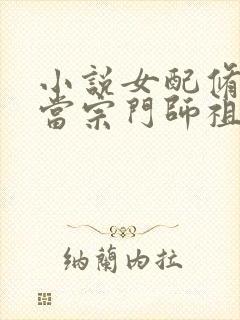 小說女配修
當宗門師祖
納蘭內拉